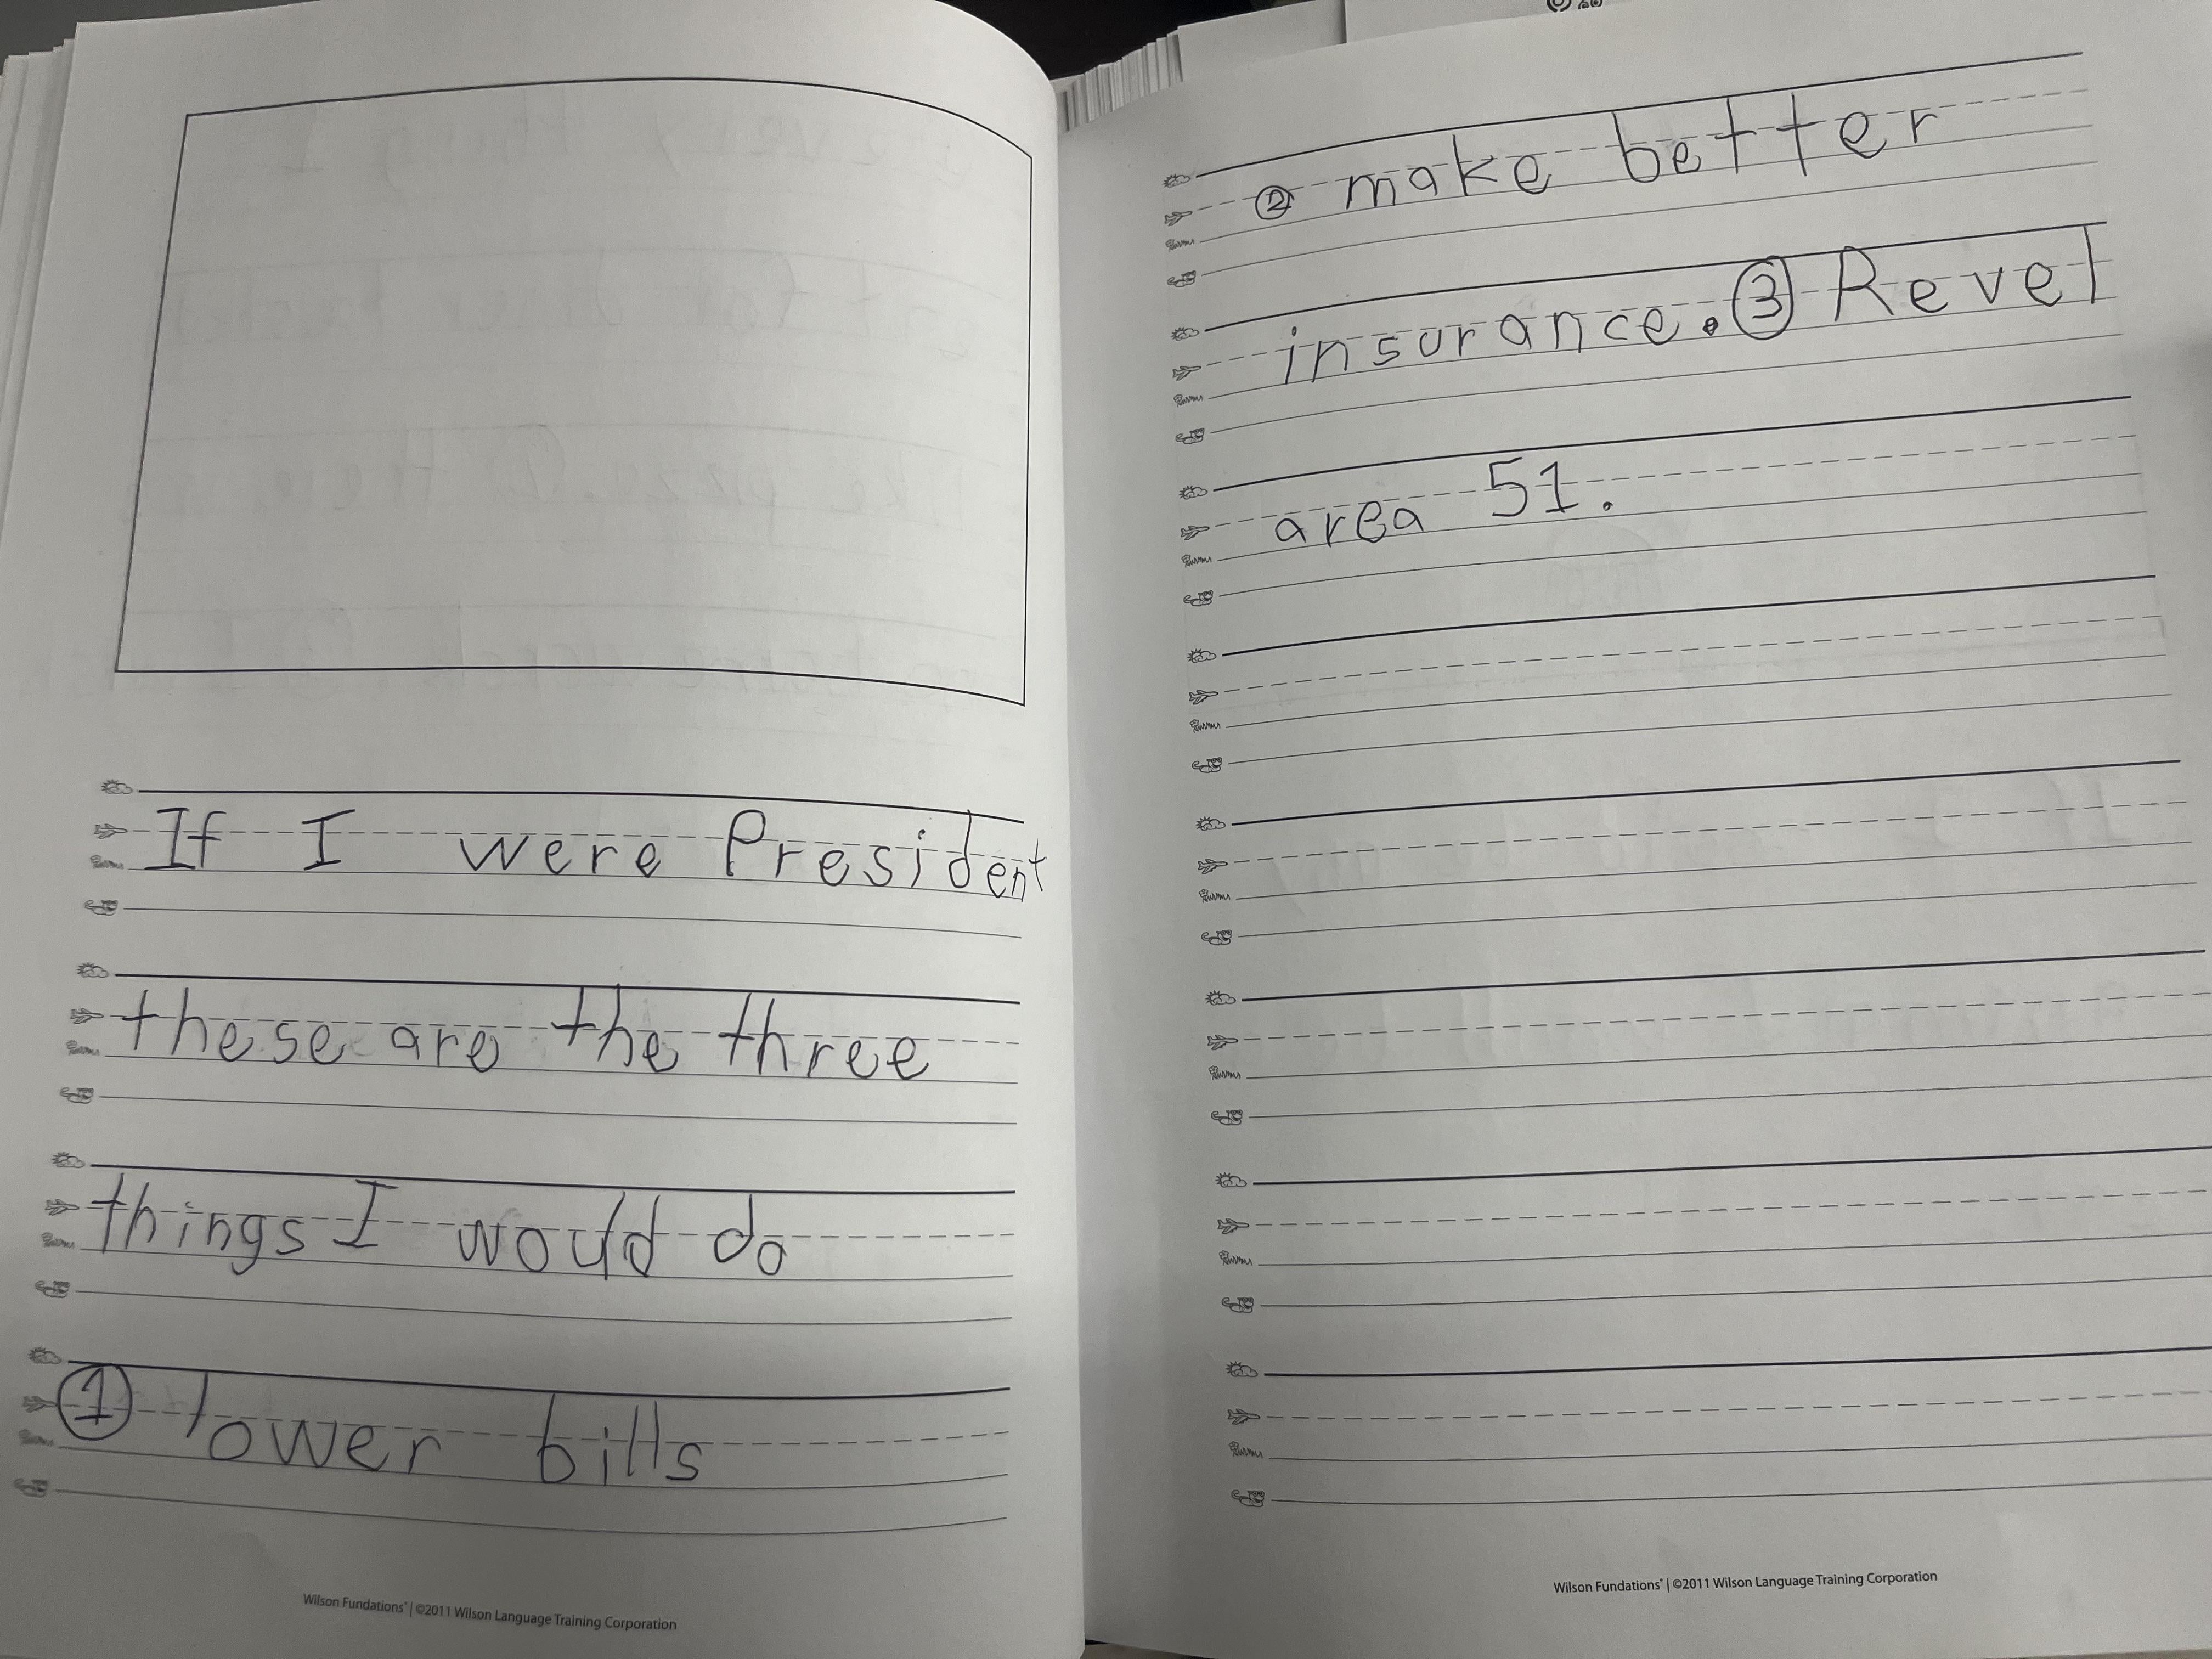 If I were President
these are the three
things I would do
① lower bills
Wilson Fundations® | ©2011 Wilson Language Training Corporation
② make better
insurance. ③ Revel
area 51.
Wilson Fundations® | ©2011 Wilson Language Training Corporation